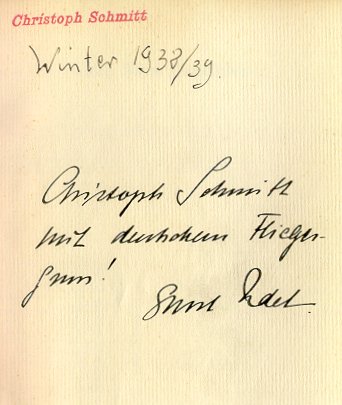 Christoph Schmitt
Winter 1938/39.
Christoph Schmitt
mit deutschem Flieger-
gruss!
Ernst Udet.